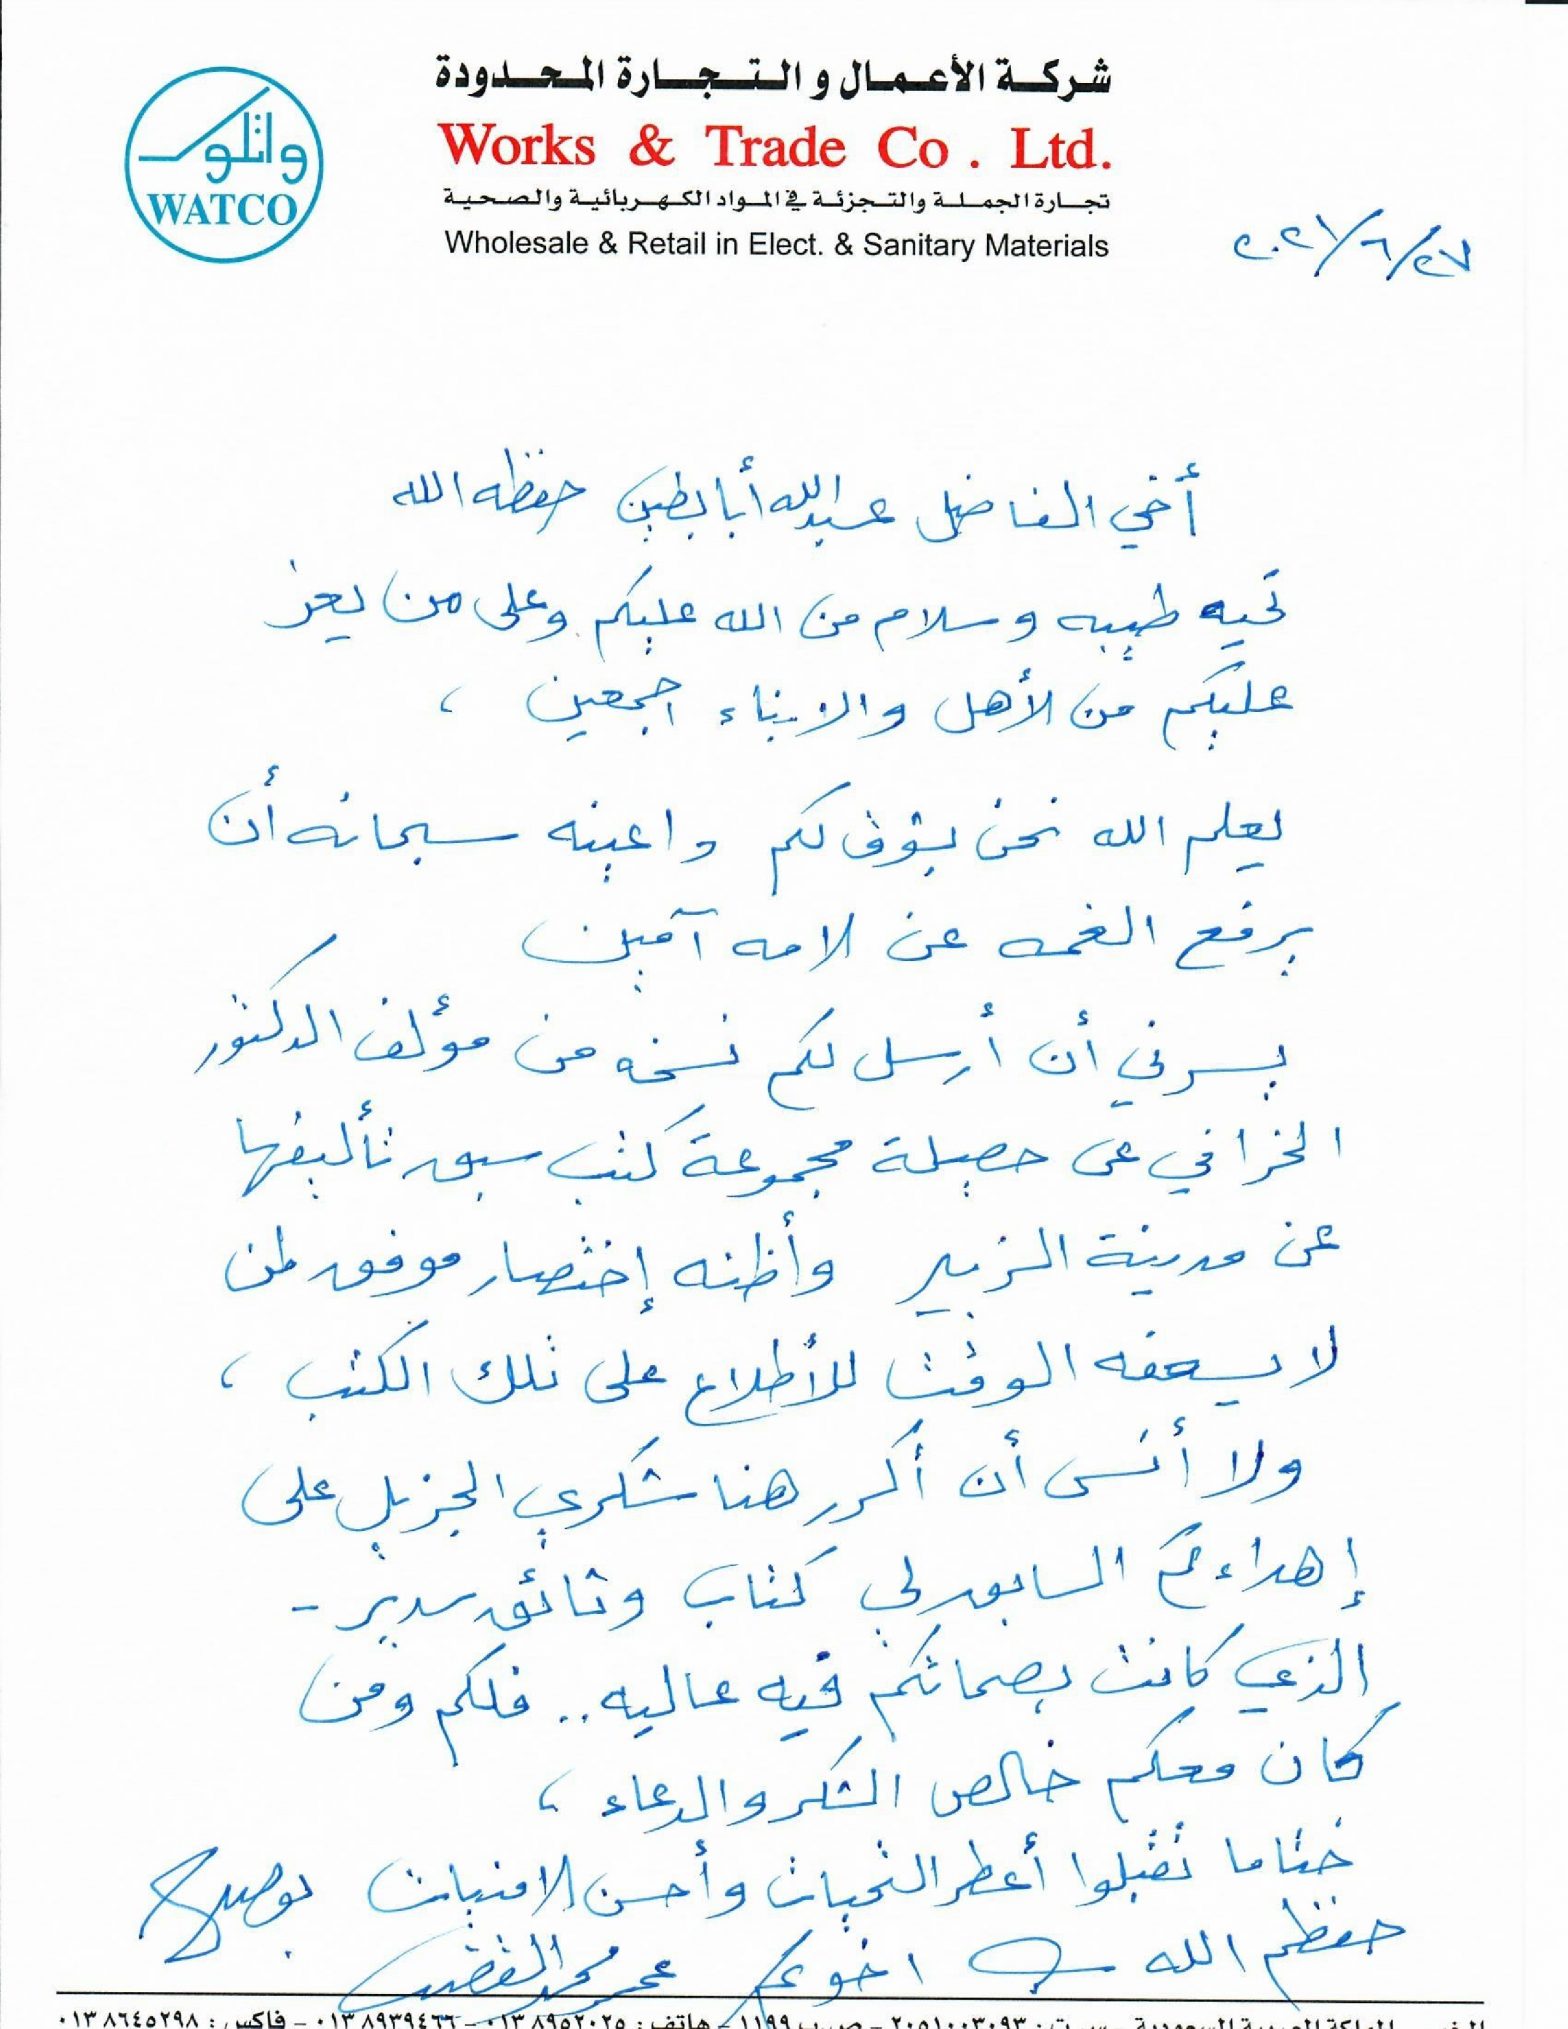 شركة الأعمال والتجارة المحدودة
Works & Trade Co . Ltd.
تجارة الجملة والتجزئة في المواد الكهربائية والصحية
Wholesale & Retail in Elect. & Sanitary Materials
واتكو
WATCO
٢٠٢١/٦/٢٧
أخي الفاضل عبدالله أبابطين حفظه الله
تحيه طيبه وسلام من الله عليكم وعلى من يعز
عليكم من الأهل والابناء اجمعين ،
يعلم الله نحن بشوق لكم سبحانه أن
يرفع الغمه عن الامه آمين
يسرني أن أرسل لكم نسخه من مؤلف الدكتور
الخرافي عن حصيلة مجموعة كتب سبق تأليفها
عن مدينة الزبير وأظنه إختصار موفق لمن
لا يسعفه الوقت للأطلاع على تلك الكتب ،
ولا أنسى أن أكرر هنا شكري الجزيل على
إهداءكم السابق لي كتاب وثائق سدير -
الذي كانت بصماتكم فيه عاليه .. فلكم ومن
كان معكم خالص الشكر والدعاء ،
ختاما تقبلوا أعطر التحيات وأحسن الامنيات
حفظكم الله اخوكم محمد
المملكة العربية السعودية - س.ت : ٢٠٥١٠٠٣٠٩٣ - ص.ب ١١٩٩ - هاتف : ٠١٣٨٩٥٢٠٢٥ - ٠١٣٨٩٣٩٤٦٦ - فاكس : ٠١٣٨٦٤٥٢٩٨